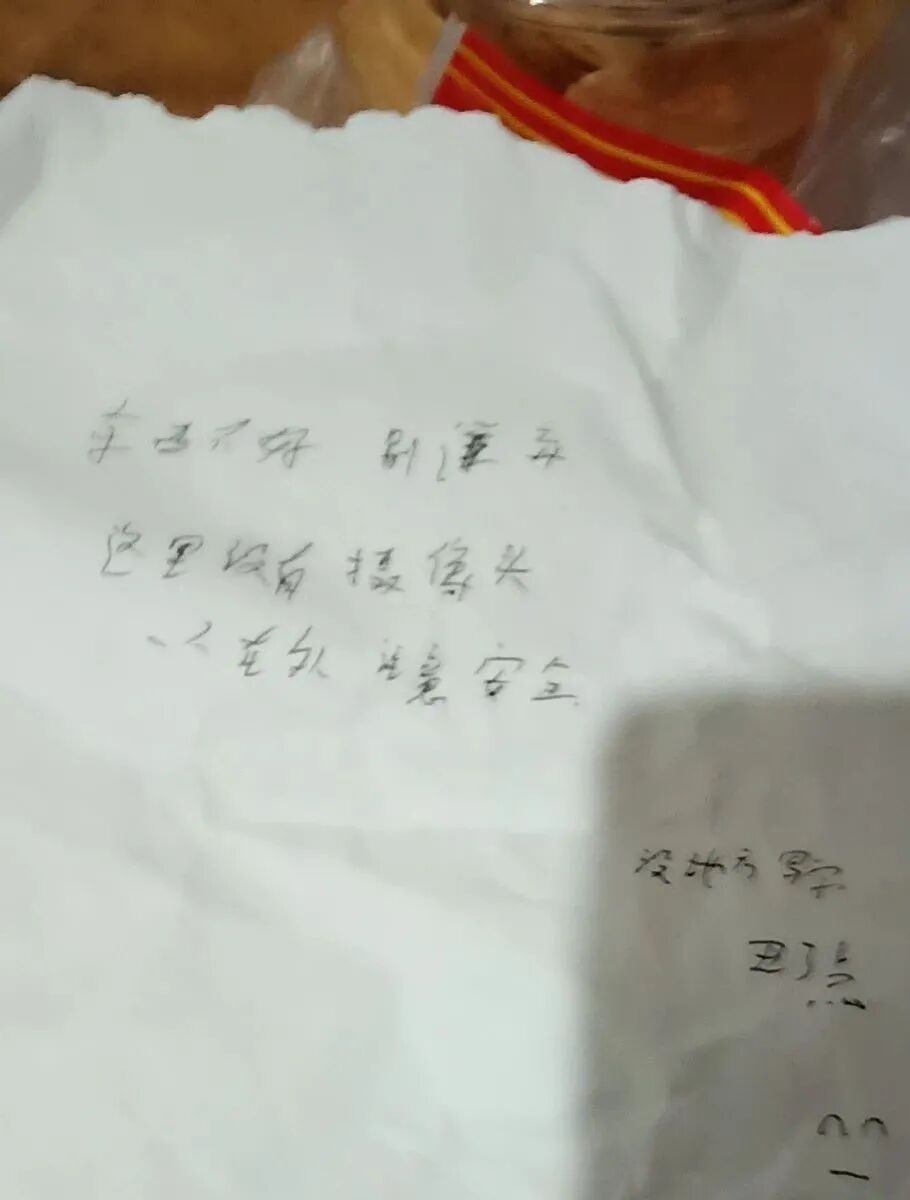 东西不好 别嫌弃
这里没有摄像头
一个在外 注意安全
没地方写字
丑了点